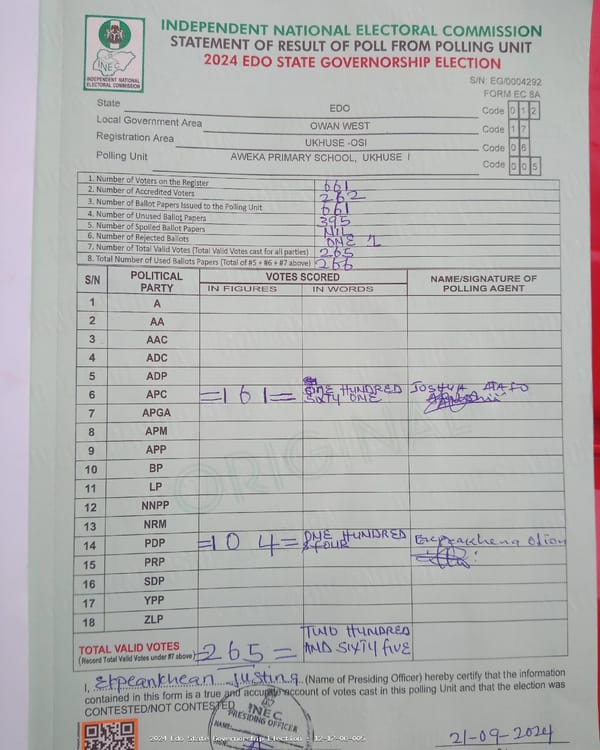 INDEPENDENT NATIONAL ELECTORAL COMMISSION
STATEMENT OF RESULT OF POLL FROM POLLING UNIT
2024 EDO STATE GOVERNORSHIP ELECTION
INEC
INDEPENDENT NATIONAL ELECTORAL COMMISSION
S/N: EG/0004292
FORM EC 8A
State EDO Code 0 1 2
Local Government Area OWAN WEST Code 1 7
Registration Area UKHUSE -OSI Code 0 6
Polling Unit AWEKA PRIMARY SCHOOL, UKHUSE I Code 0 0 5
1. Number of Voters on the Register 661
2. Number of Accredited Voters 262
3. Number of Ballot Papers Issued to the Polling Unit 661
4. Number of Unused Ballot Papers 395
5. Number of Spoiled Ballot Papers NIL
6. Number of Rejected Ballots ONE 1
7. Number of Total Valid Votes (Total Valid Votes cast for all parties) 265
8. Total Number of Used Ballots Papers (Total of #5 + #6 + #7 above) 266
S/N POLITICAL PARTY VOTES SCORED NAME/SIGNATURE OF POLLING AGENT
IN FIGURES IN WORDS
1 A
2 AA
3 AAC
4 ADC
5 ADP
6 APC =161= ONE HUNDRED SIXTY ONE JOSHUA
7 APGA
8 APM
9 APP
10 BP
11 LP
12 NNPP
13 NRM
14 PDP =104= ONE HUNDRED & FOUR
15 PRP
16 SDP
17 YPP
18 ZLP
ORIGINAL
TOTAL VALID VOTES =265= TWO HUNDRED AND SIXTY FIVE
(Record Total Valid Votes under #7 above)
I, Justina (Name of Presiding Officer) hereby certify that the information
contained in this form is a true and accurate account of votes cast in this polling Unit and that the election was
CONTESTED/NOT CONTESTED
INEC
PRESIDING OFFICER
NAME:
21-09-2024
2024 Edo State Governorship Election - 12-17-06-005